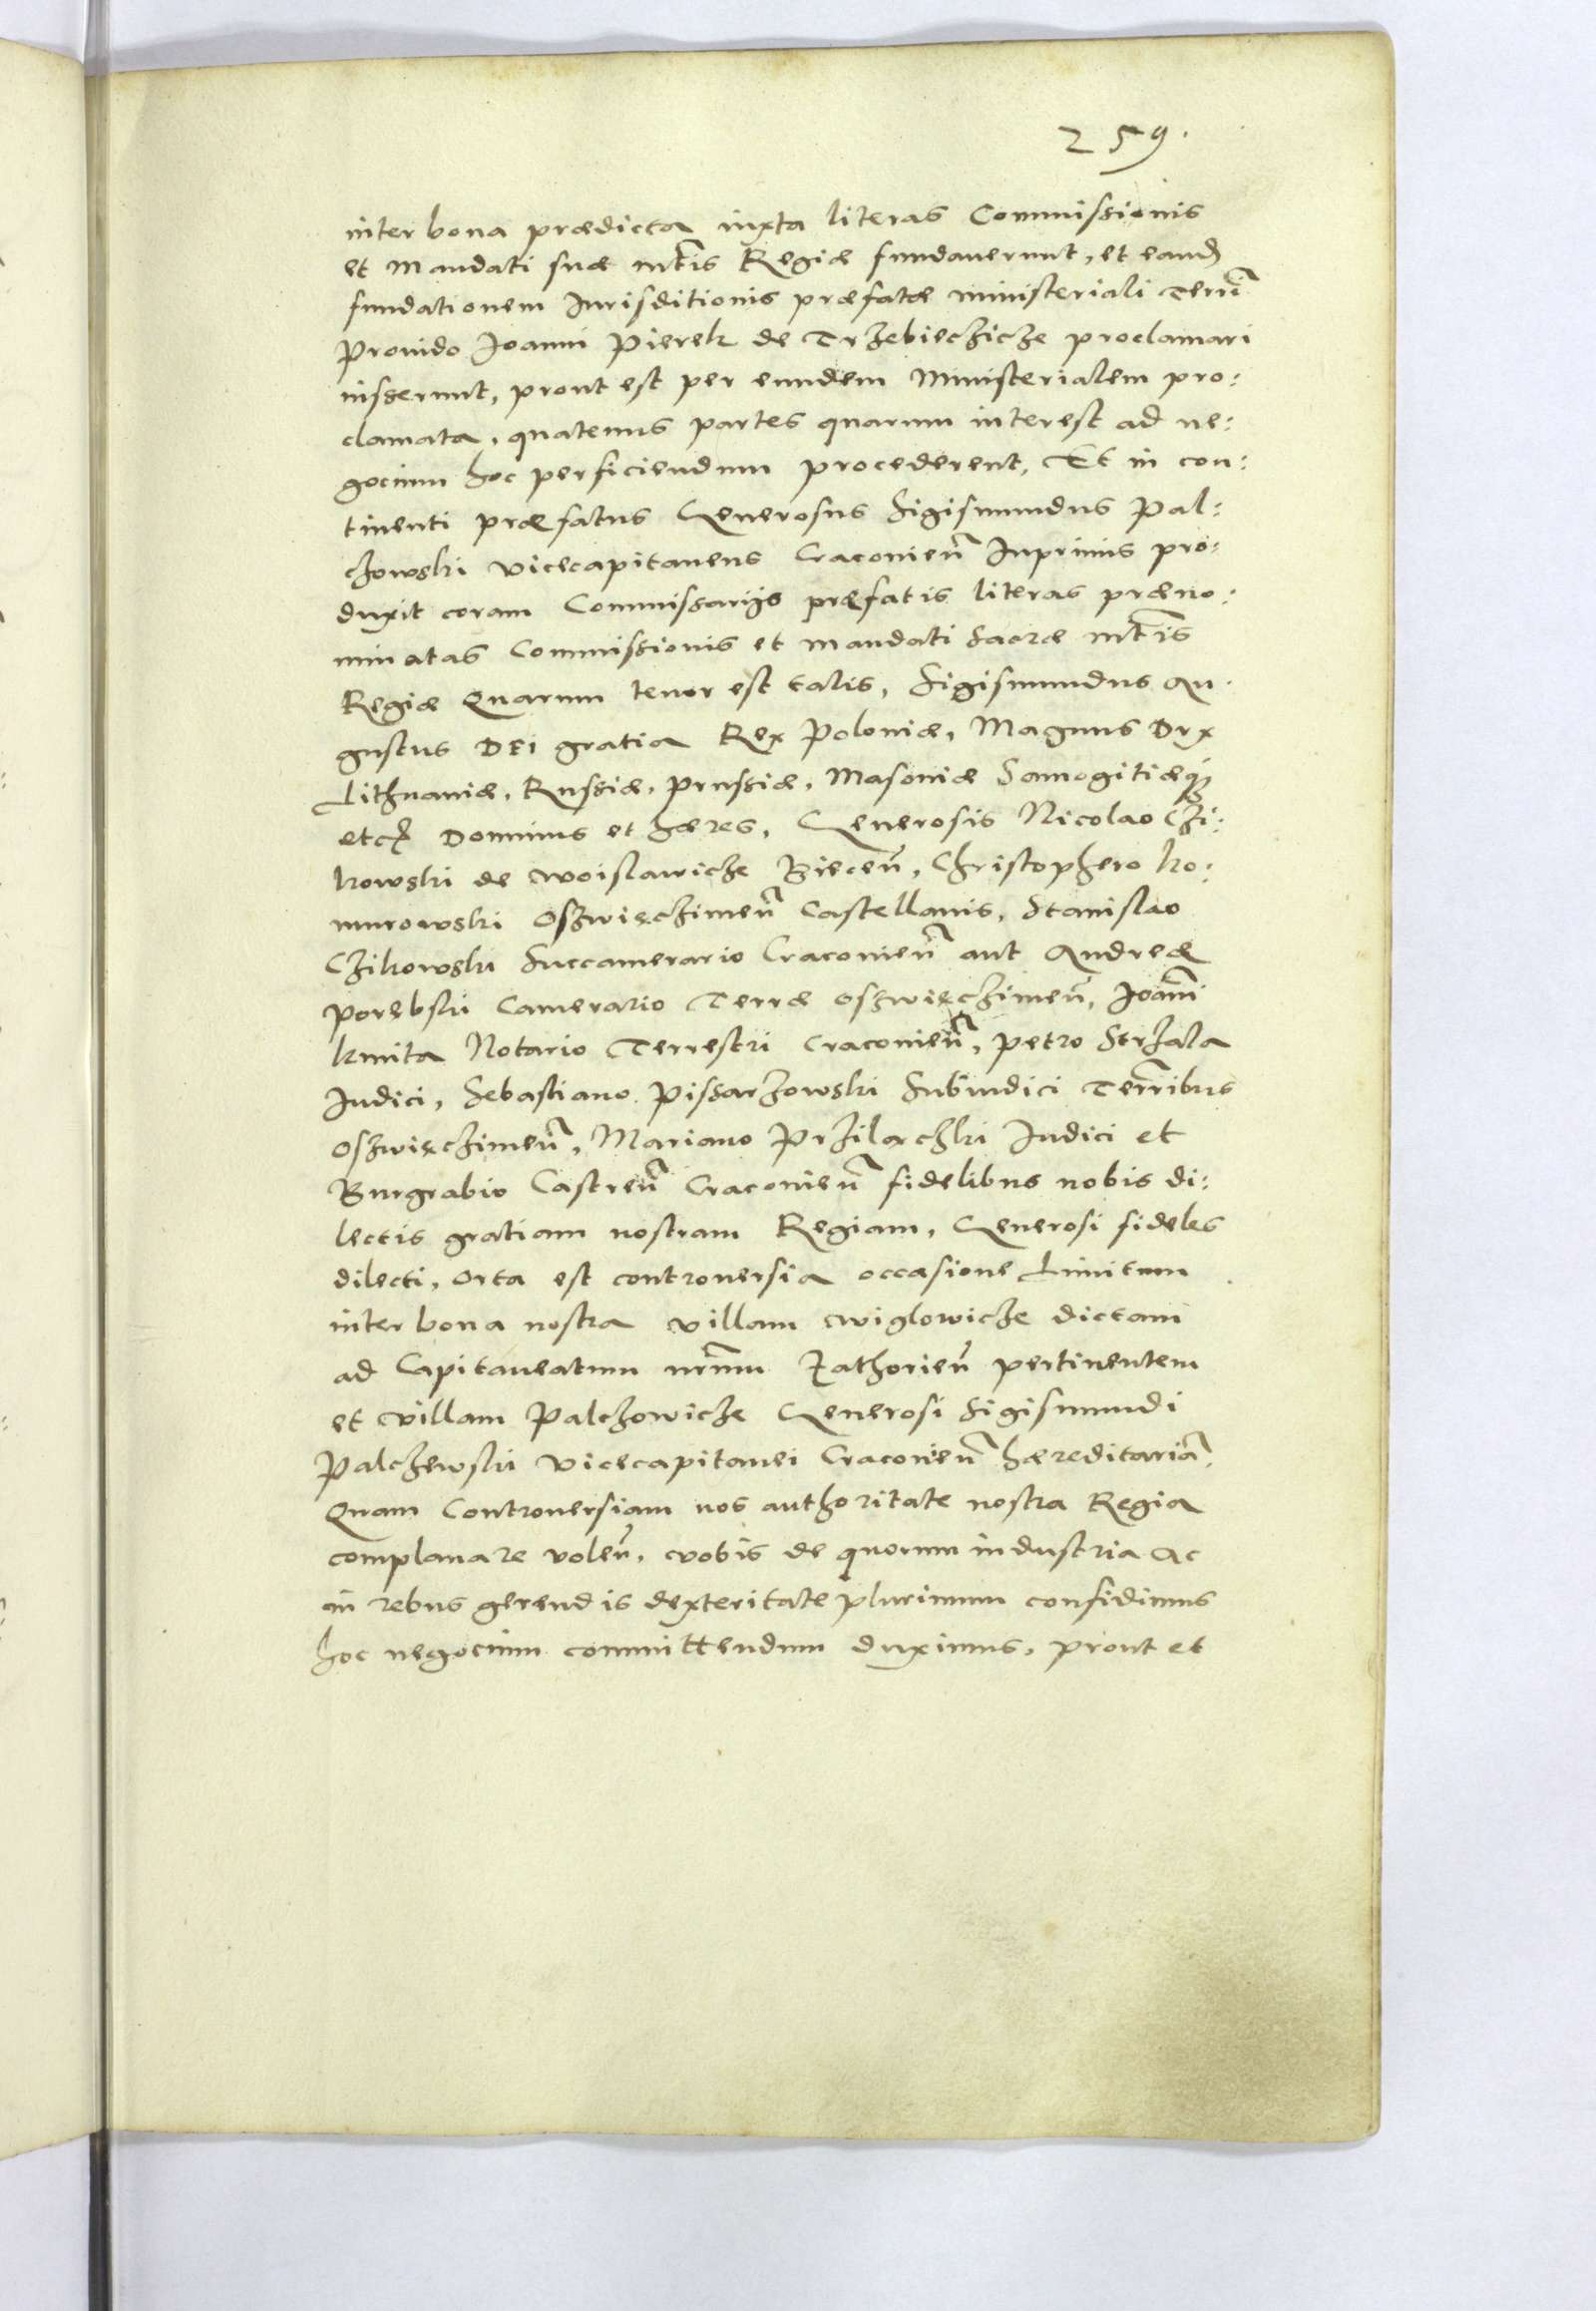 259.
inter bona prædicta iuxta literas Commissionis
et Mandati suæ Mtis Regiæ fundauerunt, et eand
fundationem Iurisditionis præfatæ ministeriali Terrī
Prouido Joanni Pierek de Trzebieczicze proclamari
iusserunt, prout est per eundem Ministerialem pro:
clamata, quatenus partes quarum interest ad ne:
gocium hoc perficiendum procederent, Et in con:
tinenti præfatus Generosus Sigismundus Pal:
czowski Vicecapitaneus Cracovieñ Inprimis pro:
duxit coram Commissarijs præfatis literas præno:
minatas Commissionis et mandati Sacræ Mtis
Regiæ Quarum tenor est talis, Sigismundus Au:
gustus DEI gratia Rex Poloniæ, Magnus Dux
Lithuaniæ, Russiæ, Prussiæ, Masouiæ Samogitiæq3
etc Dominus et hæres, Generosis Nicolao Czi:
kowski de Woislawicze Bieceñ, Christophero Ko:
murowski Oszwięczimeñ Castellanis, Stanislao
Czikowski Succamerario Cracovieñ aut Andreæ
Porębski Camerario Terræ Oszwięczimeñ, Joanni
Kmita Notario Terrestri Cracovieñ, Petro Strzala
Iudici, Sebastiano Pissarzowski Subiudici Terribus
Oszwięczimeñ, Mariano Przilęczki Iudici et
Burgrabio Castreñ Cracovieñ fidelibus nobis di:
lectis gratiam nostram Regiam, Generosi fideles
dilecti, Orta est controuersia occasione Limitum
inter bona nostra villam Wiglowicze dictam
ad Capitaneatum nrum Zathorieñ pertinentem
et villam Palczowicze Generosi Sigismundi
Palczewski Vicecapitanei Cracovieñ hæreditariã,
Quam Controuersiam nos authoritate nostra Regia
complanare voleñ, vobis de quorum industria ac
in rebus gerendis dexteritate plurimum confidimus
hoc negocium committendum duximus, prout et